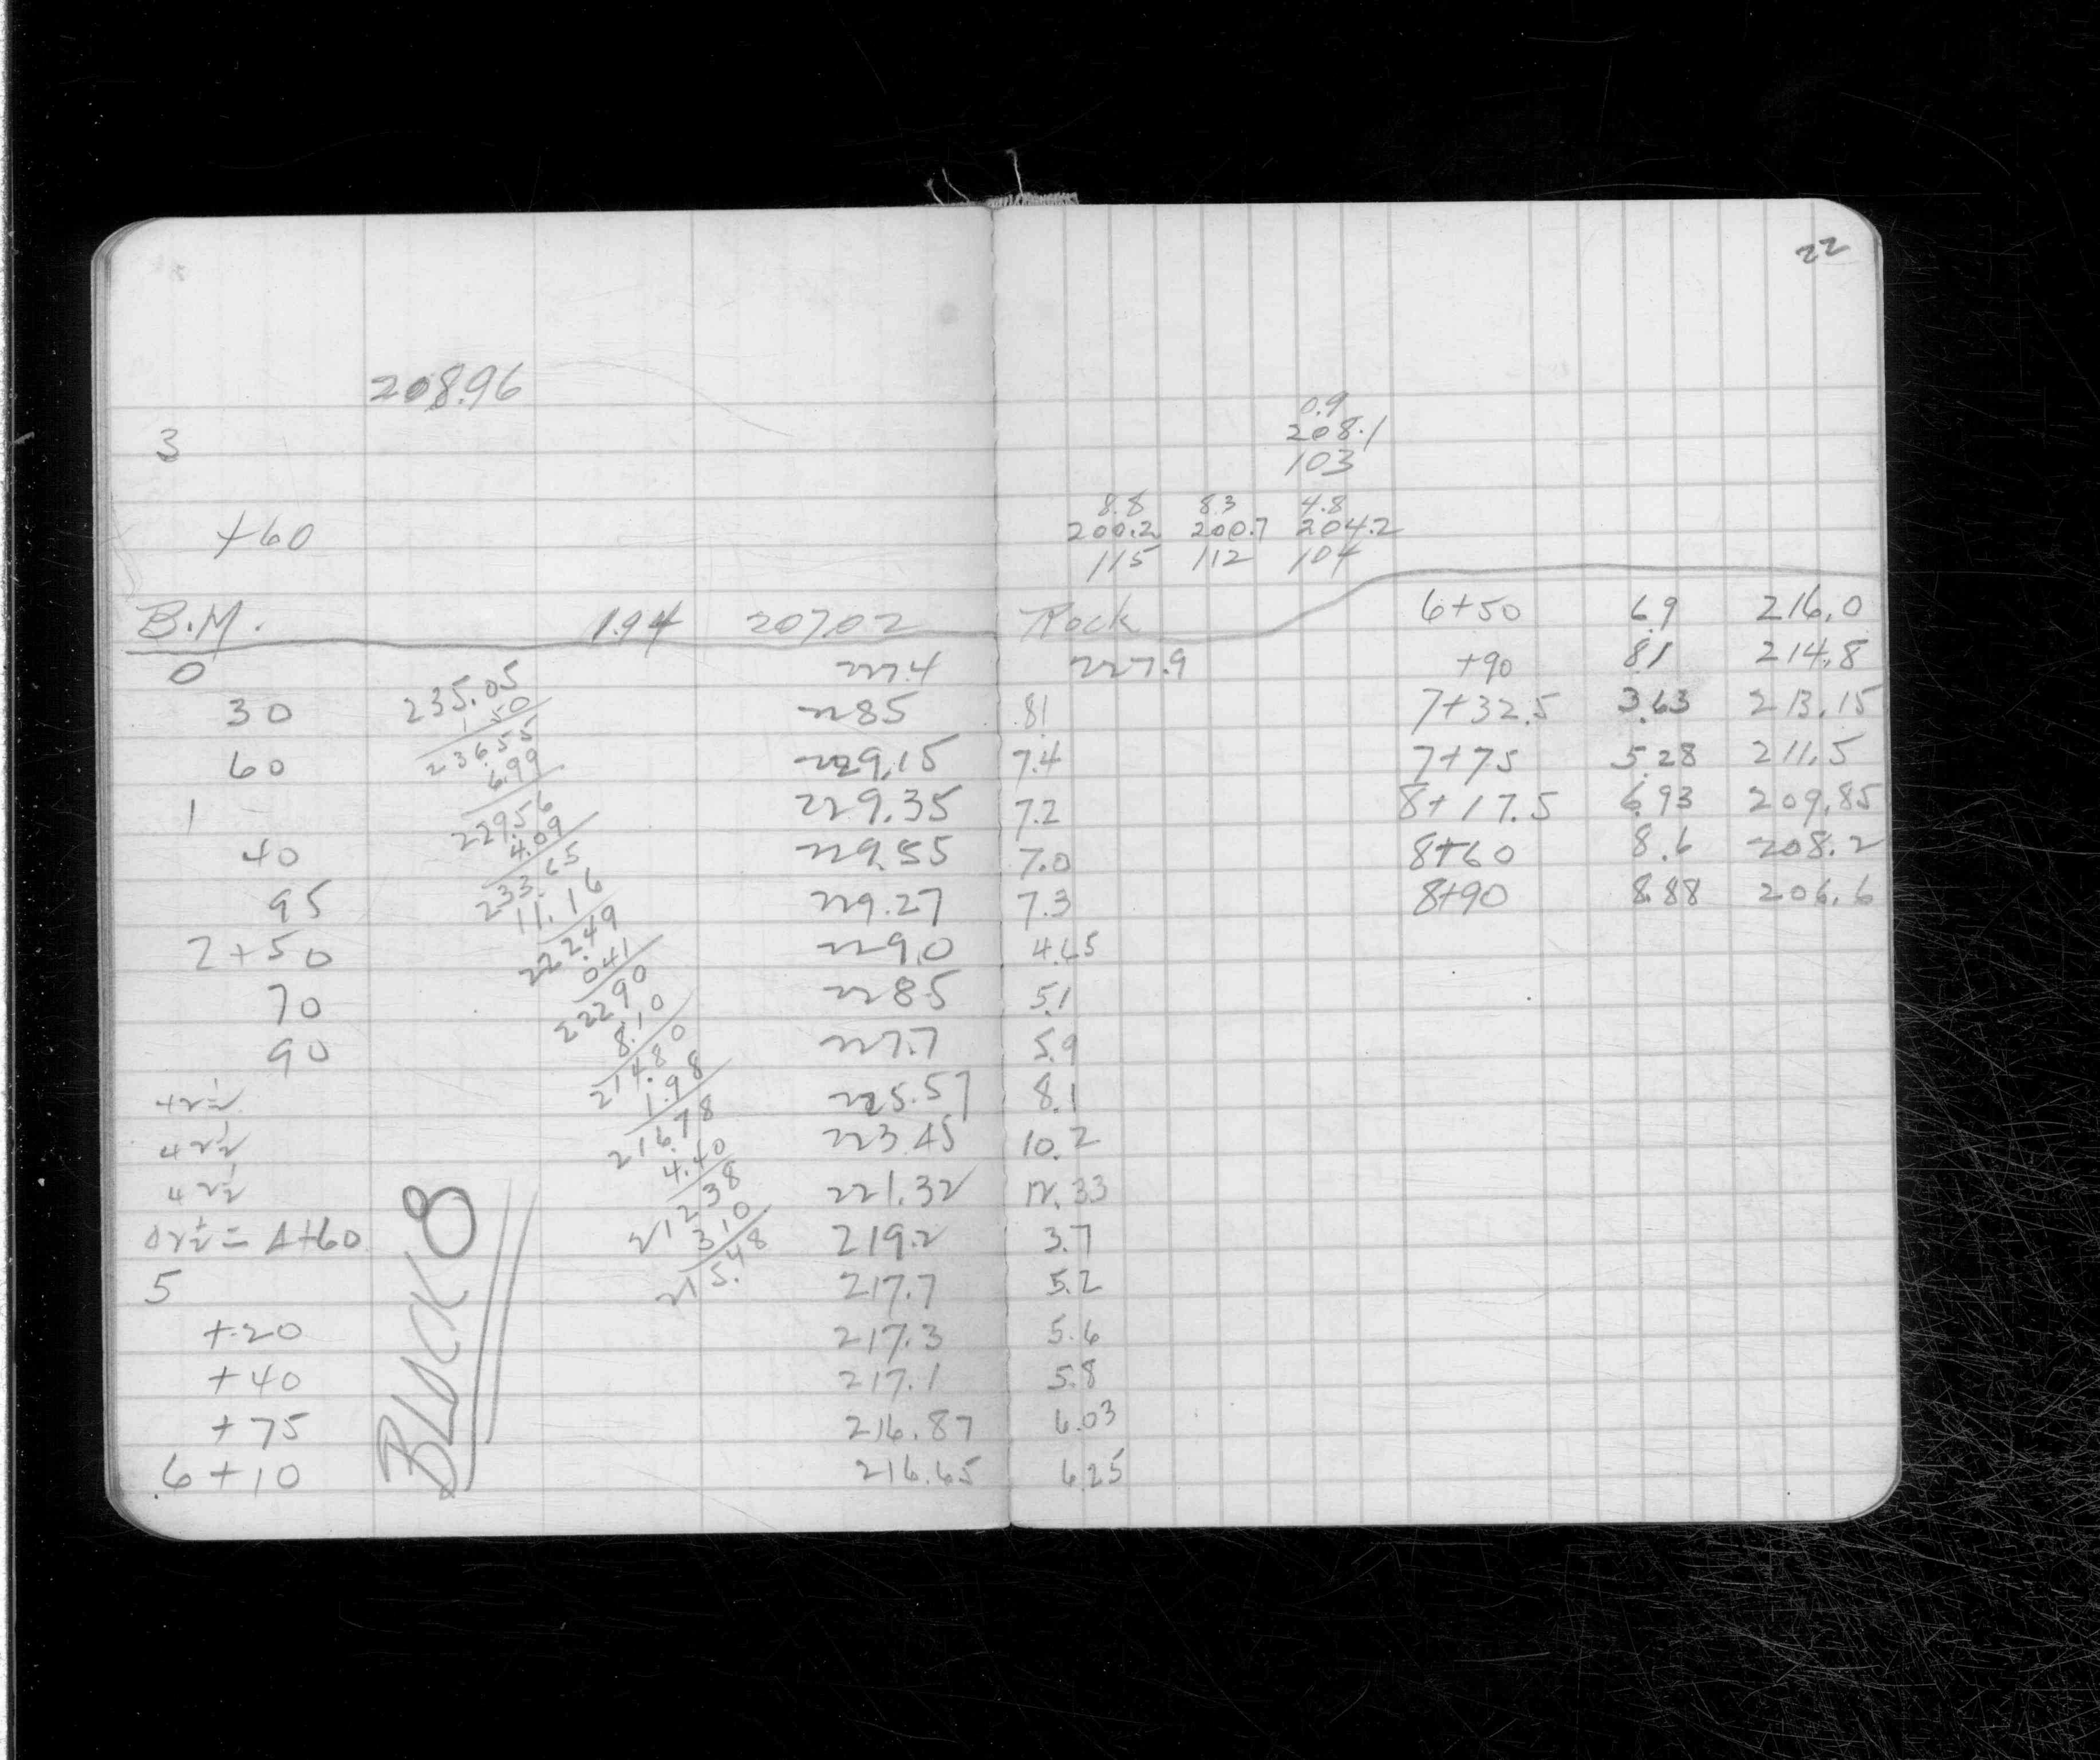 22
208.96
0.9
3 208.1
103
8.8 8.3 4.8
+60 200.2 200.7 204.2
115 112 104
B.M. 1.94 207.02 Rock
0 227.4 227.9
30 228.5 8.1
60 229.15 7.4
1 229.35 7.2
40 229.55 7.0
95 229.27 7.3
2+50 229.0 4.65
70 228.5 5.1
90 227.7 5.9
42½ 225.57 8.1
42½ 223.45 10.2
42½ 221.32 12.33
42½ = 4+60 219.2 3.7
5 217.7 5.2
+20 217.3 5.6
+40 217.1 5.8
+75 216.87 6.03
6+10 216.65 6.25
235.05
1.50
236.55
6.99
229.56
4.09
233.65
11.16
222.49
0.41
222.90
8.10
214.80
1.98
216.78
4.40
212.38
3.10
215.48
BLOCK 8
6+50 6.9 216.0
+90 8.1 214.8
7+32.5 3.63 213.15
7+75 5.28 211.5
8+17.5 6.93 209.85
8+60 8.6 208.2
8+90 8.88 206.6